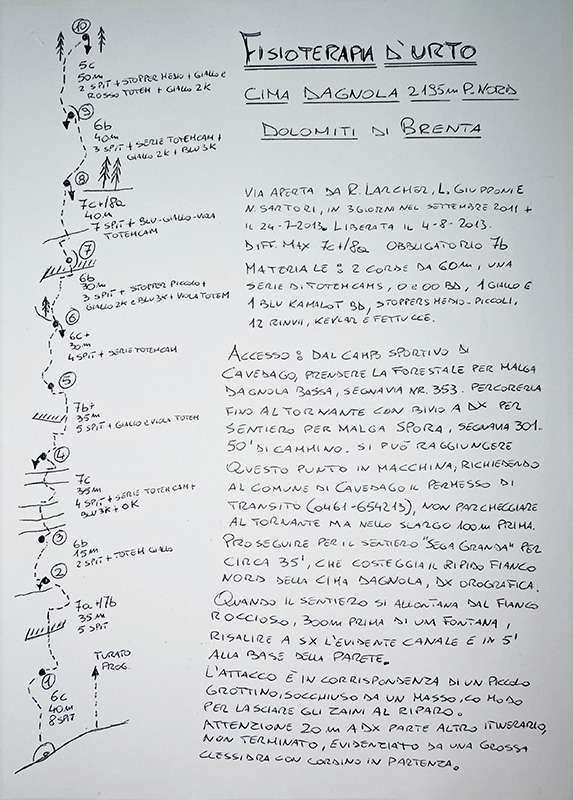 FISIOTERAPIA D'URTO
CIMA DAGNOLA 2195m P. NORD
DOLOMITI DI BRENTA
VIA APERTA DA R. LARCHER, L. GIUPPONI E
N. SARTORI, IN 3 GIORNI NEL SETTEMBRE 2011 +
IL 24-7-2013. LIBERATA IL 4-8-2013.
DIFF. MAX 7c+/8a OBBLIGATORIO 7b
MATERIALE: 2 CORDE DA 60m, UNA
SERIE DI TOTEMCAMS, 0 e 00 BD, 1 GIALLO E
1 BLU KAMALOT BD, STOPPERS MEDIO-PICCOLI,
12 RINVII, KEVLAR E FETTUCCE.
ACCESSO: DAL CAMPO SPORTIVO DI
CAVEDAGO, PRENDERE LA FORESTALE PER MALGA
DAGNOLA BASSA, SEGNAVIA NR. 353. PERCORERLA
FINO AL TORNANTE CON BIVIO A DX PER
SENTIERO PER MALGA SPORA, SEGNAVIA 301.
50' DI CAMMINO. SI PUÓ RAGGIUNGERE
QUESTO PUNTO IN MACCHINA, RICHIEDENDO
AL COMUNE DI CAVEDAGO IL PERMESSO DI
TRANSITO (0461-654213), NON PARCHEGGIARE
AL TORNANTE MA NELLO SLARGO 100m PRIMA.
PROSEGUIRE PER IL SENTIERO "SEGA GRANDA" PER
CIRCA 35', CHE COSTEGGIA IL RIPIDO FIANCO
NORD DELLA CIMA DAGNOLA, DX OROGRAFICA.
QUANDO IL SENTIERO SI ALLONTANA DAL FIANCO
ROCCIOSO, 300m PRIMA DI UM FONTANA,
RISALIRE A SX L'EVIDENTE CANALE E IN 5'
ALLA BASE DELLA PARETE.
L'ATTACCO È IN CORRISPONDENZA DI UN PICCOLO
GROTTINO, SOCCHIUSO DA UN MASSO, COMODO
PER LASCIARE GLI ZAINI AL RIPARO.
ATTENZIONE 20m A DX PARTE ALTRO ITINERARIO,
NON TERMINATO, EVIDENZIATO DA UNA GROSSA
CLESSIDRA CON CORDINO IN PARTENZA.
10
5c
50m
2 SPIT + STOPPER MEDIO + GIALLO E
ROSSO TOTEM + GIALLO 2K
9
6b
40m
3 SPIT + SERIE TOTEMCAM +
GIALLO 2K + BLU 3K
8
7c+/8a
40m
7 SPIT + BLU-GIALLO-VIOLA
TOTEMCAM
7
6b
30m
3 SPIT + STOPPER PICCOLO +
GIALLO 2K E BLU 3K + VIOLA TOTEM
6
6c+
30m
4 SPIT + SERIE TOTEMCAM
5
7b+
35m
5 SPIT + GIALLO E VIOLA TOTEM
4
7c
35m
4 SPIT + SERIE TOTEMCAM +
BLU 3K + 0K
3
6b
15m
2 SPIT + TOTEM GIALLO
2
7a+/7b
35m
5 SPIT
TURATO
PROG.
1
6c
40m
8 SPIT